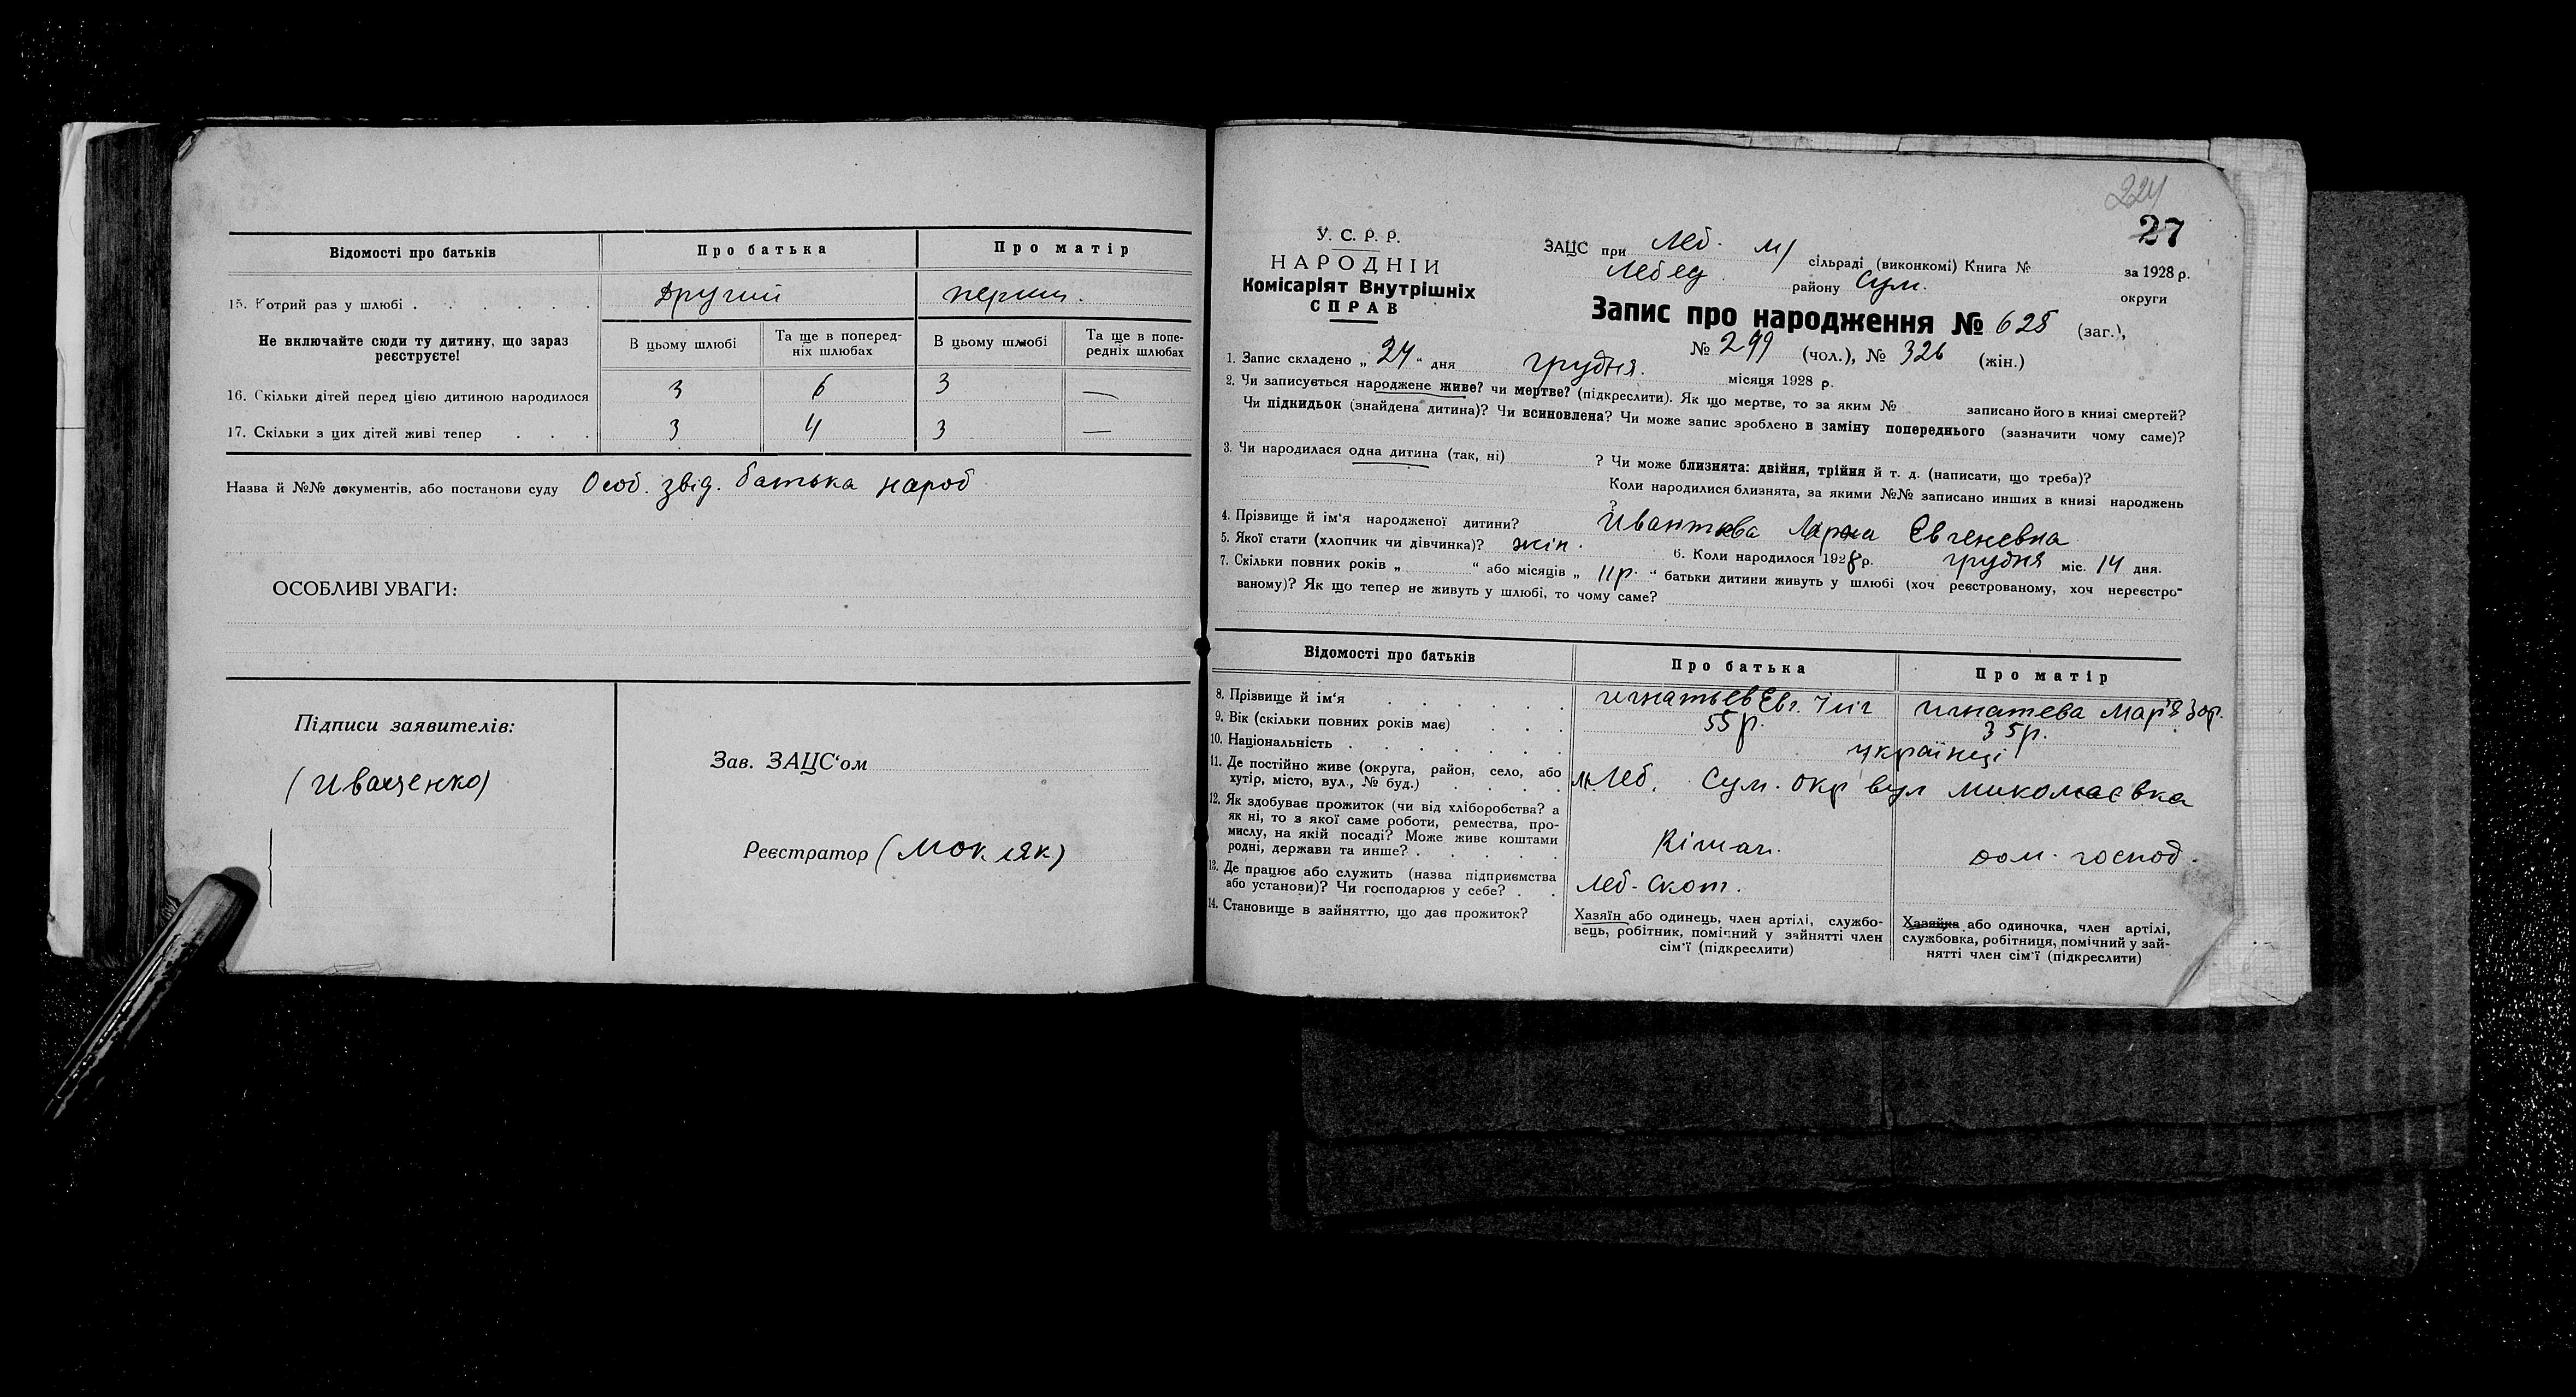 Відомості про батьків
Про батька
Про матір
15. Котрий раз у шлюбі
другий
перший.
Не включайте сюди ту дитину, що зараз реєструєте!
В цьому шлюбі
Та ще в попередніх шлюбах
В цьому шлюбі
Та ще в попередніх шлюбах
16. Скільки дітей перед цією дитиною народилося
3 6 3 —
17. Скільки з цих дітей живі тепер
3 4 3 —
Назва й №№ документів, або постанови суду Особ. звід. батька народ
ОСОБЛИВІ УВАГИ:
Підписи заявителів:
(Иващенко)
Зав. ЗАЦС‘ом
Реєстратор (Мокляк)
224
27
У. С. Р. Р.
НАРОДНІЙ
Комісаріят Внутрішніх
СПРАВ
ЗАЦС при Леб. м/ сільраді (виконкомі) Книга № за 1928 р.
Лебед району Сум. округи
Запис про народження № 625 (заг.),
№ 299 (чол.), № 326 (жін.)
1. Запис складено „ 24 “ дня грудня. місяця 1928 р.
2. Чи записується народжене живе? чи мертве? (підкреслити). Як що мертве, то за яким № записано його в книзі смертей?
Чи підкидьок (знайдена дитина)? Чи всиновлена? Чи може запис зроблено в заміну попереднього (зазначити чому саме)?
3. Чи народилася одна дитина (так, ні) ? Чи може близнята: двійня, трійня й т. д. (написати, що треба)?
Коли народилися близнята, за якими №№ записано инших в книзі народжень
?
4. Прізвище й ім‘я народженої дитини? Евгеневна
5. Якої стати (хлопчик чи дівчинка)? жін. 6. Коли народилося 1928 р. грудня міс. 14 дня.
7. Скільки повних років „ “ або місяців „ 11р. “ батьки дитини живуть у шлюбі (хоч реєстрованому, хоч нереєстро-
ваному)? Як що тепер не живуть у шлюбі, то чому саме?
Відомості про батьків
Про батька
Про матір
8. Прізвище й ім‘я
Игнатьев Евг.
Игнатева Мар'я
9. Вік (скільки повних років має)
55р.
35р.
10. Національність
українці
11. Де постійно живе (округа, район, село, або
хутір, місто, вул., № буд.)
м. Леб. Сум. окр вул Миколаєвка
12. Як здобуває прожиток (чи від хліборобства? а
як ні, то з якої саме роботи, ремества, про-
мислу, на якій посаді? Може живе коштами
родні, держави та инше?
дом. господ.
13. Де працює або служить (назва підприємства
або установи)? Чи господарює у себе?
Леб-
14. Становище в зайняттю, що дає прожиток?
Хазяїн або одинець, член артілі, службо-
вець, робітник, помічний у зайнятті член
сім‘ї (підкреслити)
Хазяйка або одиночка, член артілі,
службовка, робітниця, помічний у зай-
нятті член сім‘ї (підкреслити)